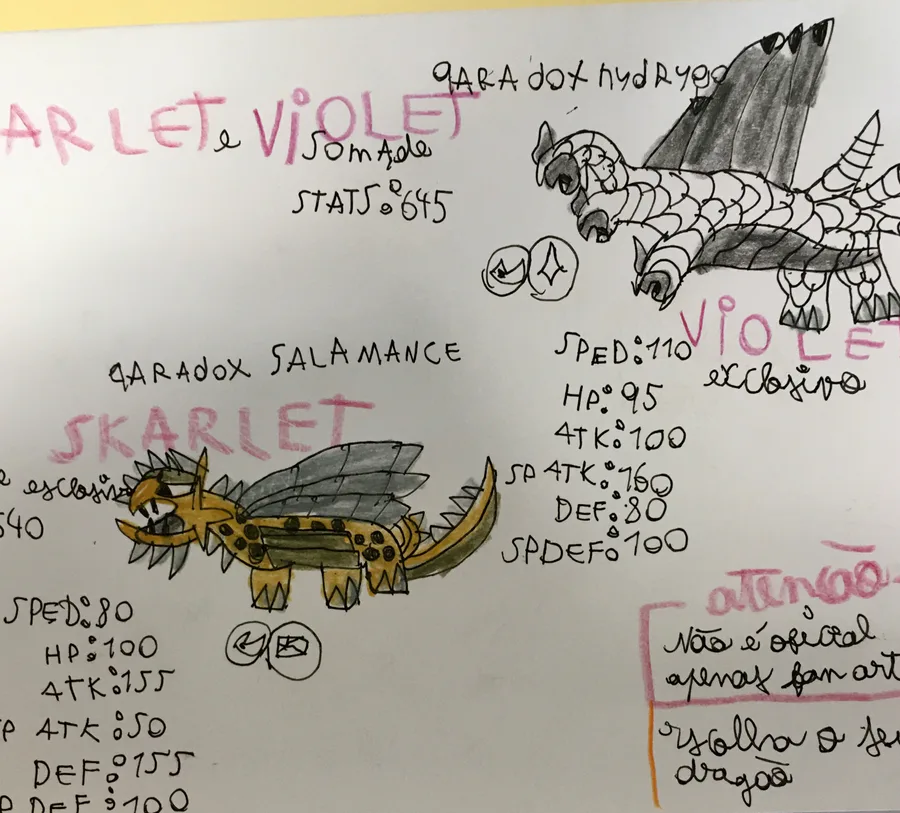 ARLET e ViOLET
SomAde
STATS: 645
PARAdOX HydRygo
SPED: 110
HP: 95
ATK: 100
SP ATK: 160
DEF: 80
SPDEF: 100
ViOLET
exclosivo
PARAdOX SALAMANCE
SKARLET
esclosivo
540
SPED: 80
HP: 100
ATK: 155
P ATK: 50
DEF: 155
P DEF: 100
atenção
Não é oficial
apenas fan art
escolha o seu
dragão